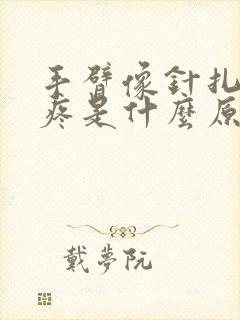 手臂像針扎
疼是什麼原
戴夢阮